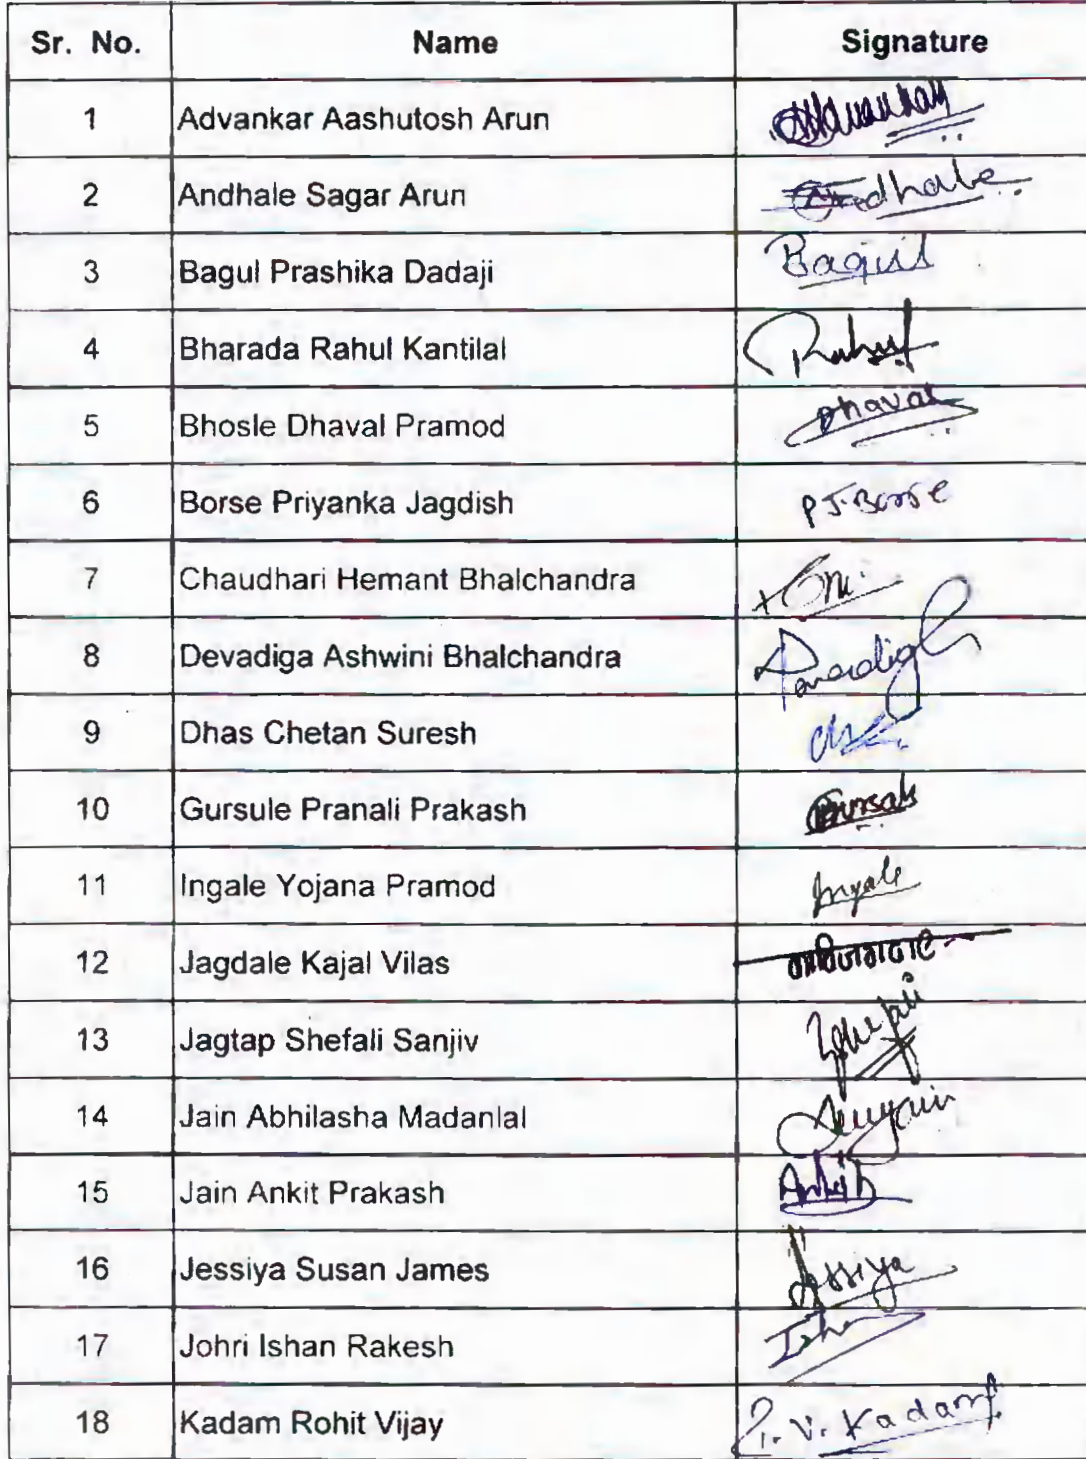 Sr. No. Name Signature
1 Advankar Aashutosh Arun
2 Andhale Sagar Arun Andhale
3 Bagul Prashika Dadaji Bagul
4 Bharada Rahul Kantilal Rahul
5 Bhosle Dhaval Pramod Dhaval
6 Borse Priyanka Jagdish P J. Borse
7 Chaudhari Hemant Bhalchandra
8 Devadiga Ashwini Bhalchandra
9 Dhas Chetan Suresh
10 Gursule Pranali Prakash
11 Ingale Yojana Pramod Ingale
12 Jagdale Kajal Vilas
13 Jagtap Shefali Sanjiv
14 Jain Abhilasha Madanlal
15 Jain Ankit Prakash Ankit
16 Jessiya Susan James Jessiya
17 Johri Ishan Rakesh
18 Kadam Rohit Vijay R. V. Kadam